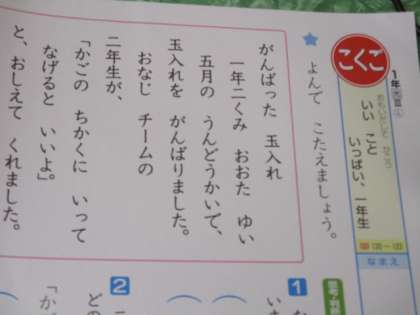 こくご
1年
おもいだして かこう
いい こと
いっぱい、一年生
なまえ
よんで こたえましょう。
がんばった 玉入れ
一年二くみ おおた ゆい
五月の うんどうかいで、
玉入れを がんばりました。
おなじ チームの
二年生が、
「かごの ちかくに いって
なげると いいよ」。
と、おしえて くれました。
1
2